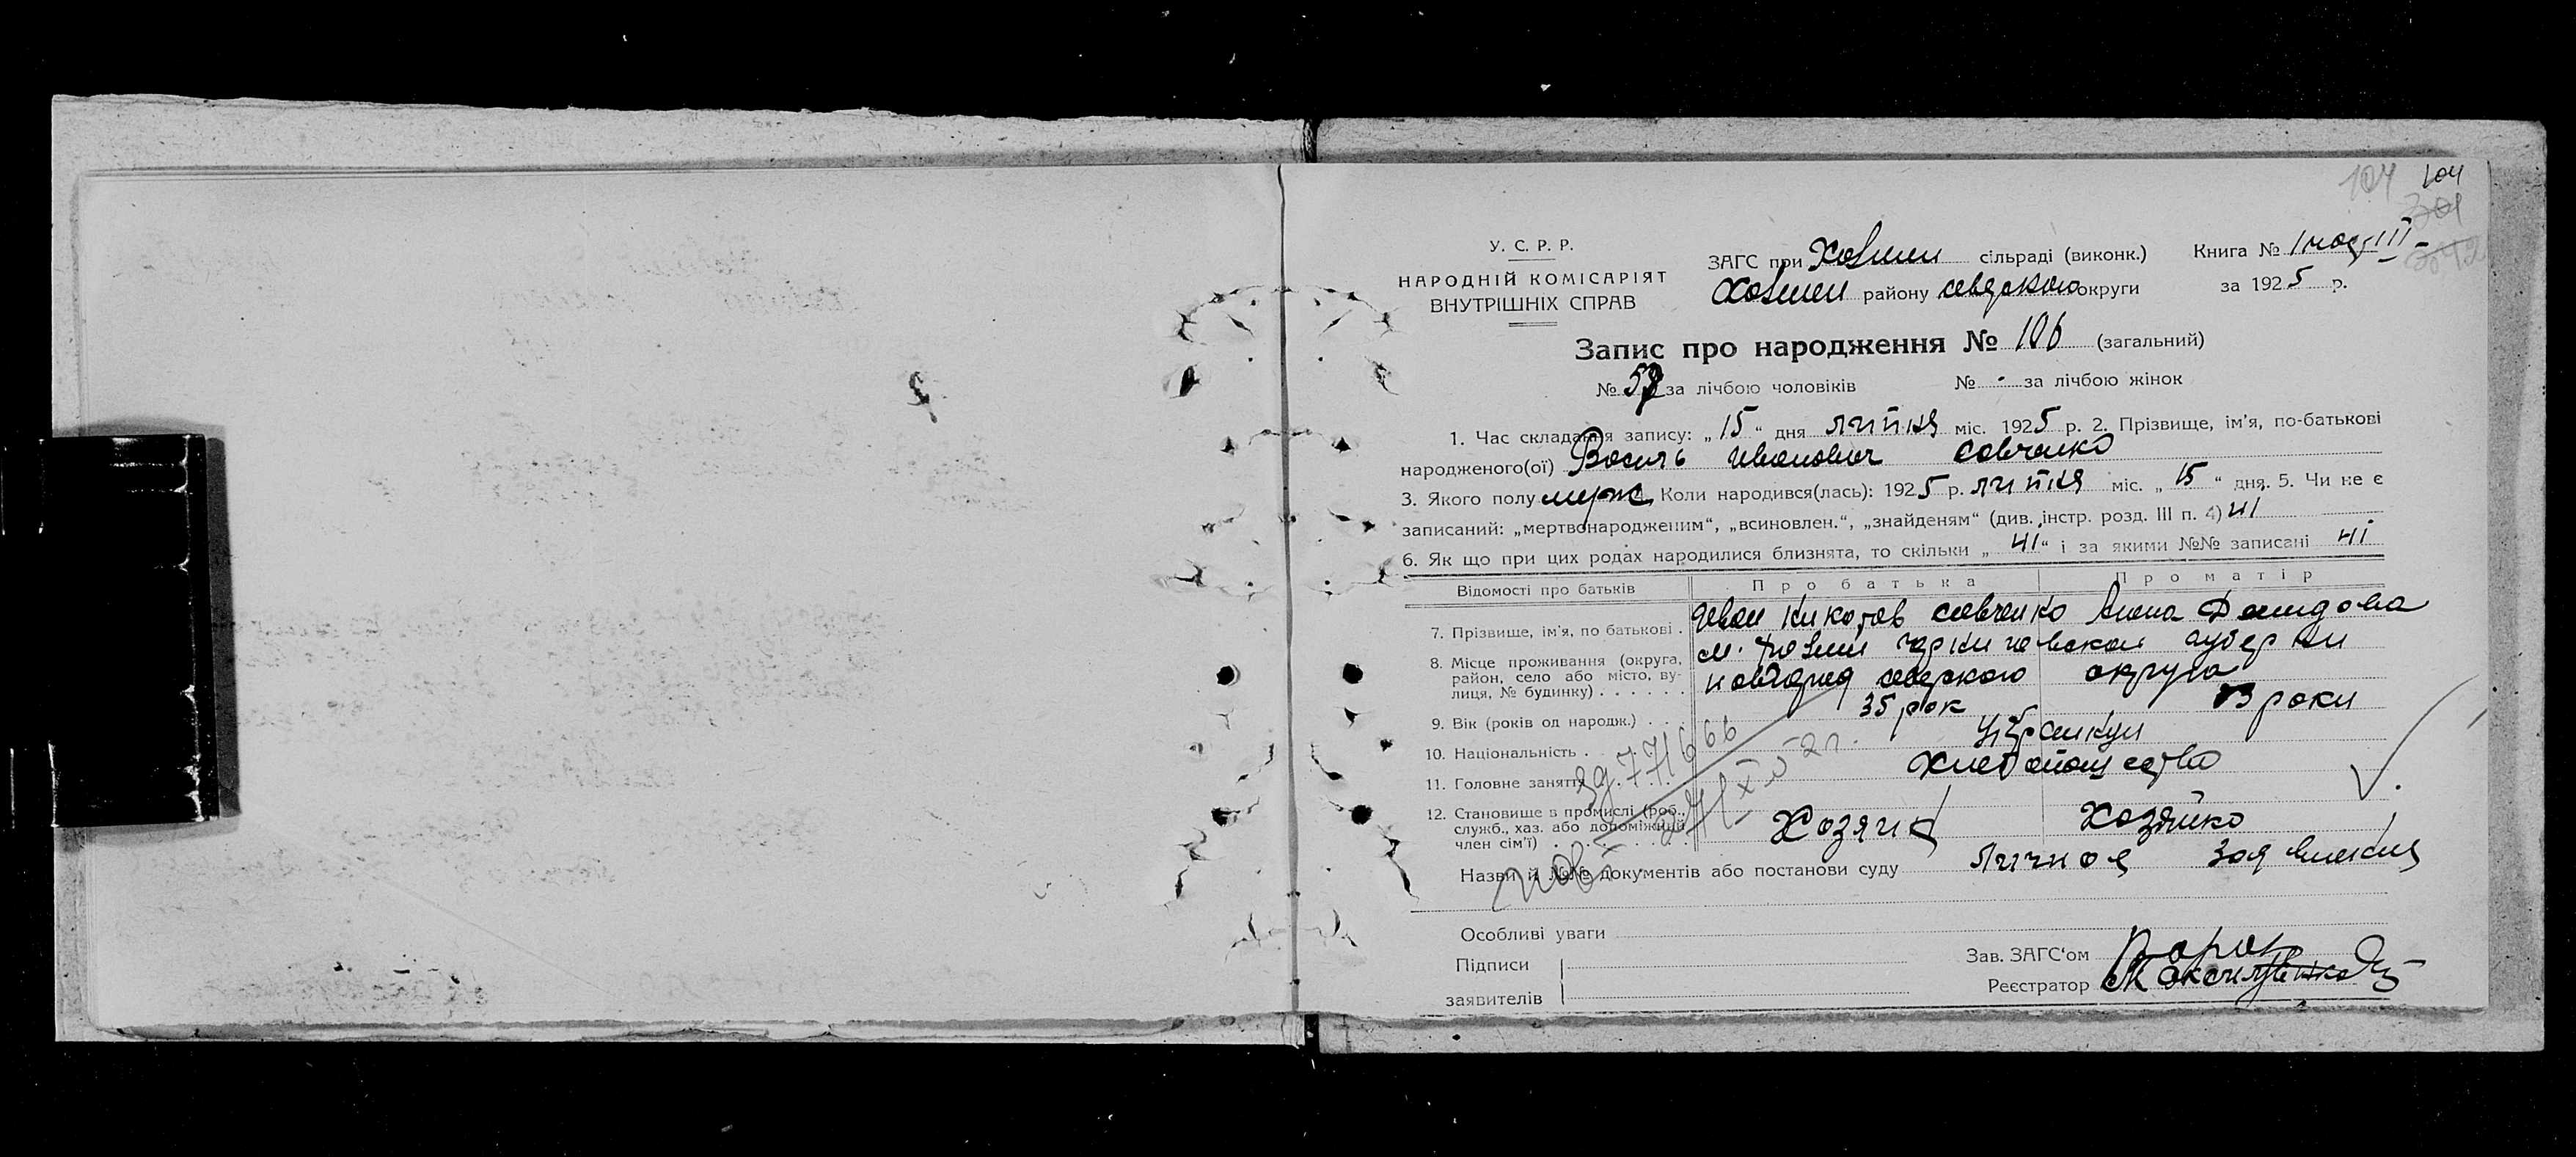 104 104
301
У. С. Р. Р.
НАРОДНІЙ КОМІСАРІЯТ
ВНУТРІШНІХ СПРАВ
ЗАГС при Холми сільраді (виконк.) Книга №
Холми району округи за 1925 р.
Запис про народження № 106 (загальний)
№ за лічбою чоловіків № - за лічбою жінок
1. Час складання запису: „ 15 “ дня липня міс. 1925 р. 2. Прізвище, ім'я, по-батькові
народженого(ої) Василь Иванович Савченко
3. Якого полу муж Коли народився(лась): 1925 р. липня міс. „ 15 “ дня. 5. Чи не є
записаний: „мертвонародженим“, „всиновлен.“, „знайденям“ (див. інстр. розд. III п. 4) ні
6. Як що при цих родах народилися близнята, то скільки „ ні “ і за якими №№ записані ні
Відомості про батьків Про батька Про матір
7. Прізвище, ім'я, по батькові . Иван Савченко Анна Демидова
8. Місце проживання (округа, район, село або місто, вулиця, № будинку) . . . . . . м. Холми губерни
округа
9. Вік (років од народж.) . . . 35 рок роки
10. Національність . Українци
11. Головне заняття
12. Становище в промислі (роб., служб., хаз. або допоміжний член сім'ї) . . . Хозяин Хозяйко
Назви й №№ документів або постанови суду Личноя заявления
Особливі уваги
Підписи
заявителів
Зав. ЗАГС'ом
Реєстратор